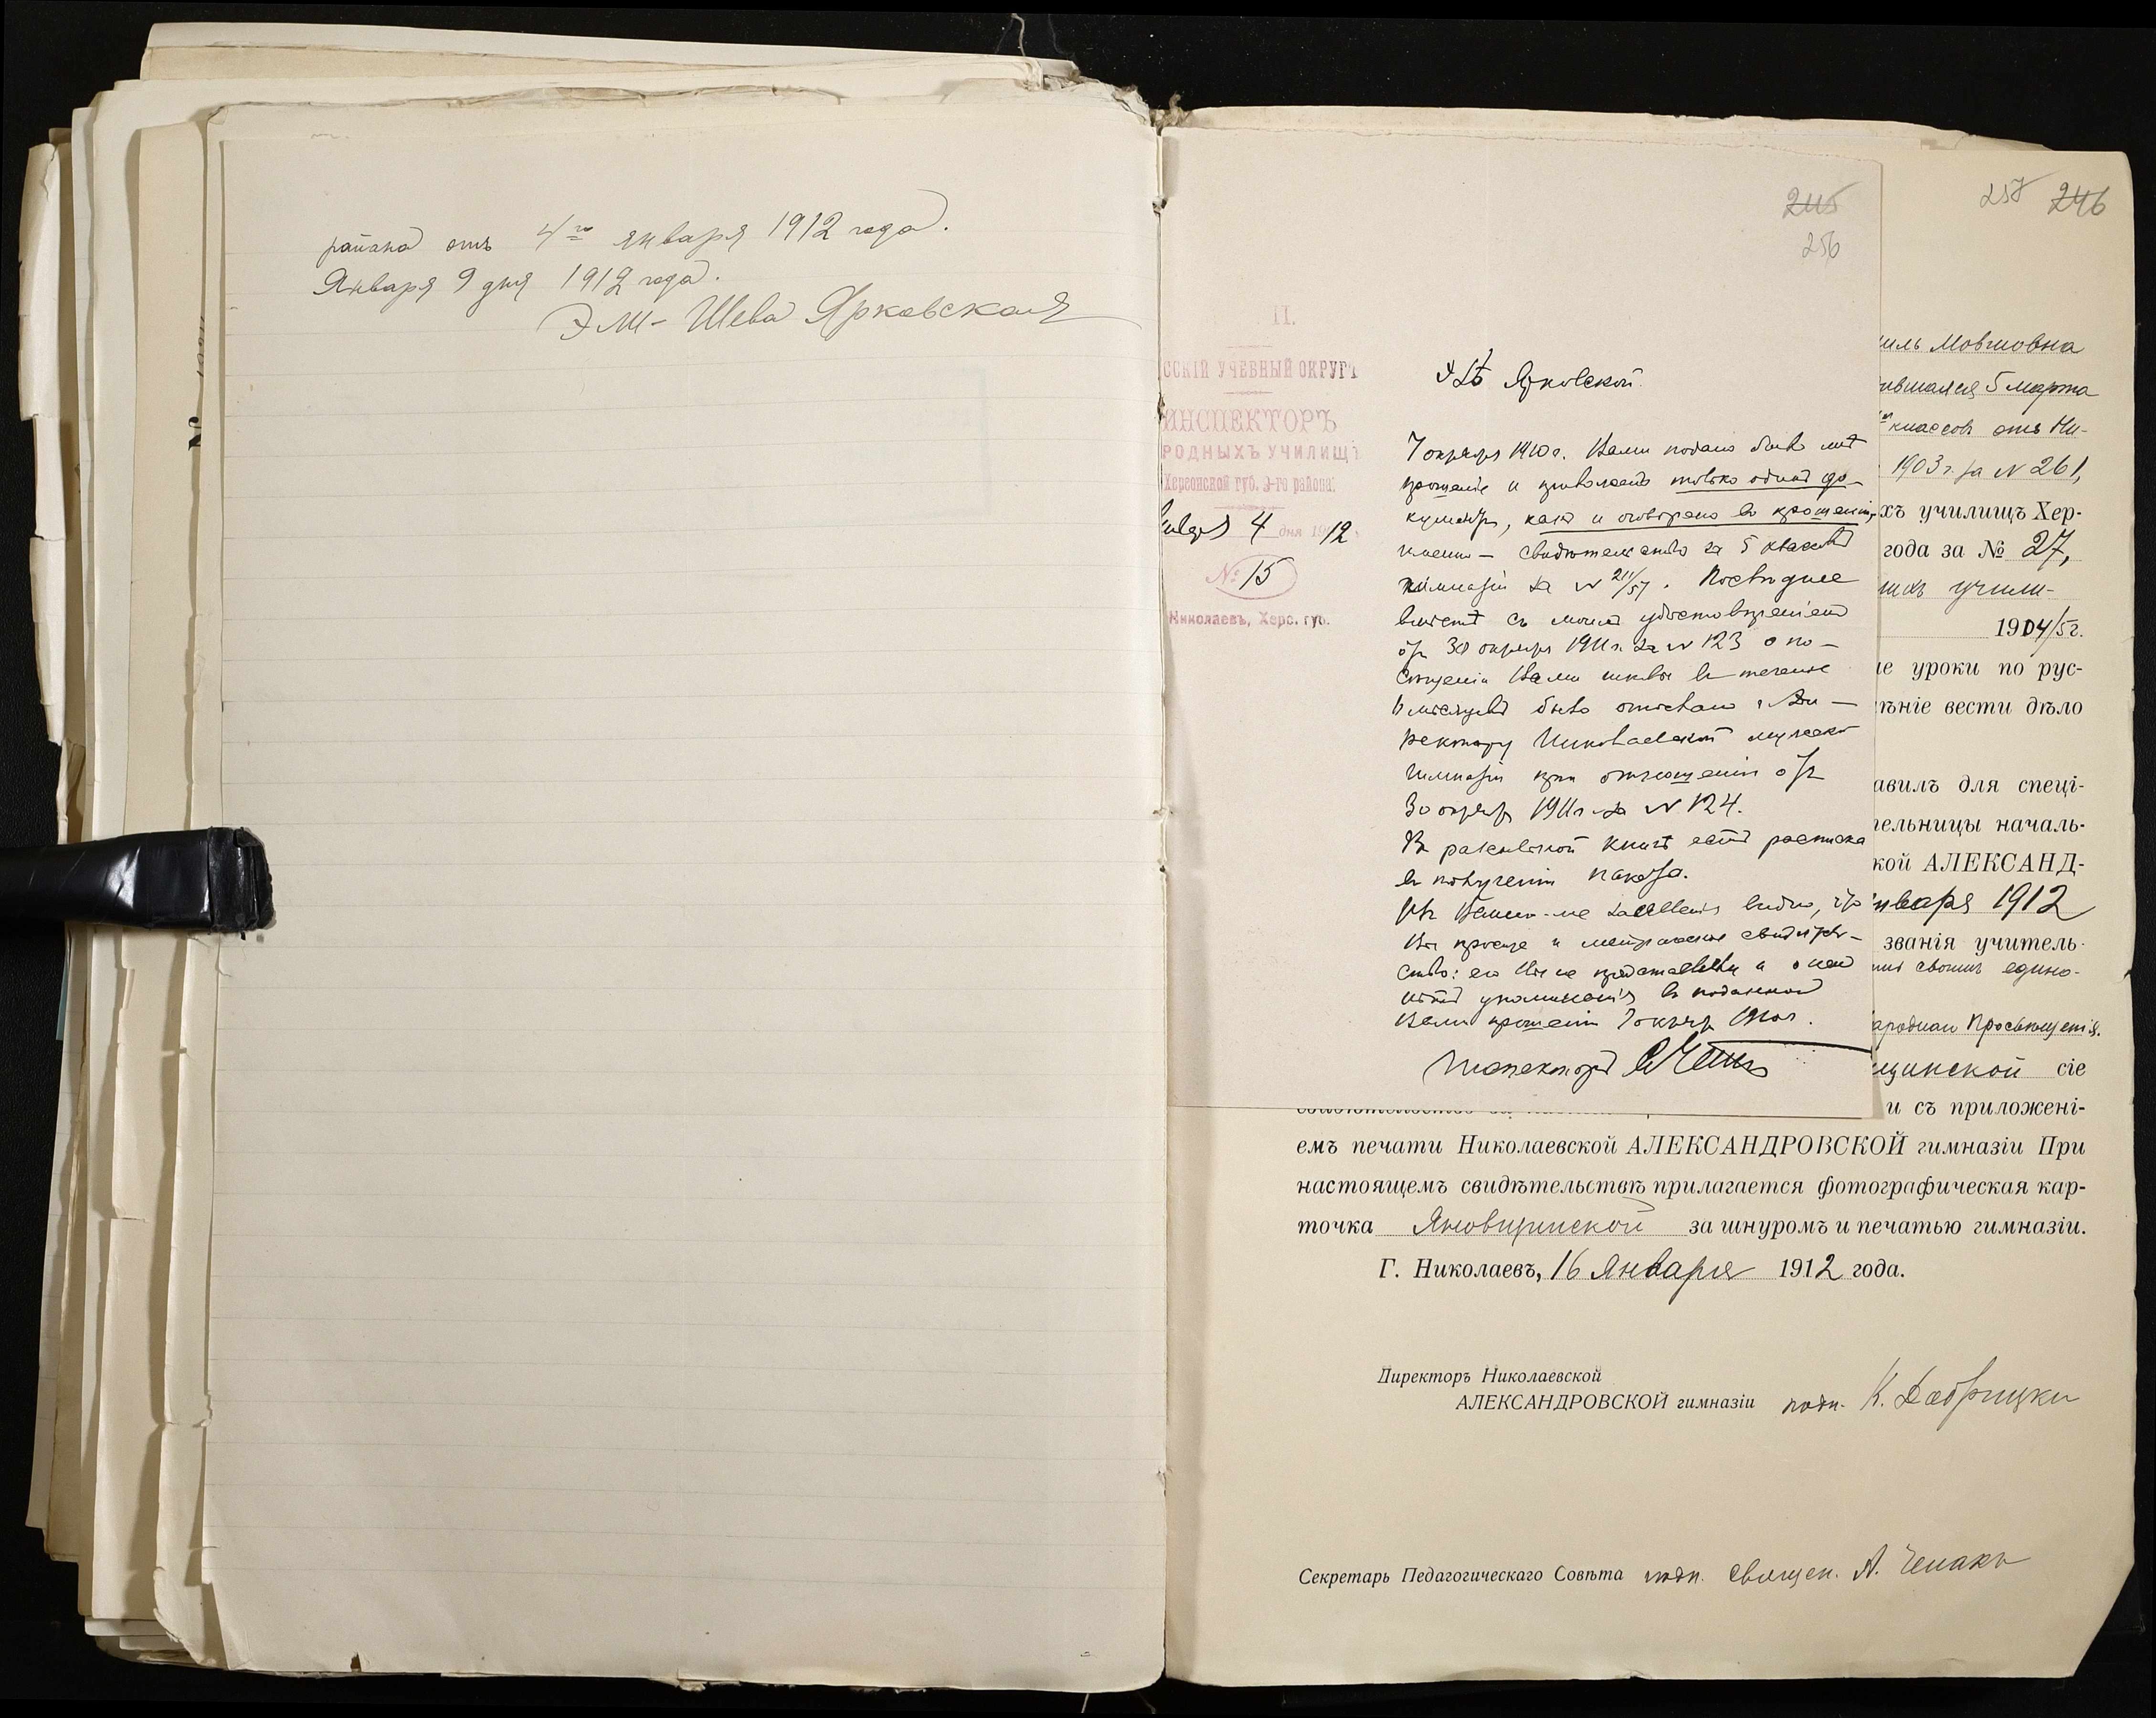 района отъ 4го января 1912 года.
Января 9 дня 1912 года.
Эли-Шева Ярковская
245
256
П.
ССКІЙ УЧЕБНЫЙ ОКРУГЪ
ИНСПЕКТОРЪ
РОДНЫХЪ УЧИЛИЩЪ
Херсонской губ. 3-го района.
4 дня 1912
№ 15
Николаевъ, Херс. губ.
Ярковской.
7 октября 1910 г. Вами подано было мнѣ
прошеніе и приложенъ только одинъ до-
кументъ, какъ и оговорено въ прошеніи,
именно — свидѣтельство за 5 классовъ
гимназіи за № 211/57. Послѣднее
вмѣстѣ съ моимъ удостовѣреніемъ
отъ 30 октября 1911 г. за № 123 о по-
сѣщеніи Вами школы въ теченіе
6 мѣсяцевъ было отослано г. Ди-
ректору Николаевской мужской
гимназіи при отношеніи отъ
30 октября 1911 г. за № 124.
Въ разсыльной книгѣ есть расписка
въ полученіи пакета.
Изъ Вашего-же заявленія видно, что
Вы просите и метрическое свидѣтель-
ство: его Вы не представляли и о немъ
нѣтъ упоминанія въ поданномъ
Вами прошеніи 7 октября 1910 г.
Инспекторъ
257 246
иль Мовшовна
ившаяся 5 марта
классовъ отъ Ни-
1903 г. за № 261,
хъ училищъ Хер-
года за № 27,
учили-
1904/5 г.
іе уроки по рус-
ѣніе вести дѣло
авилъ для спеці-
тельницы началь-
кой АЛЕКСАНД-
января 1912
званія учитель-
своимъ едино-
ароднаго Просвѣщенія.
щинской сіе
и съ приложені-
емъ печати Николаевской АЛЕКСАНДРОВСКОЙ гимназіи При
настоящемъ свидѣтельствѣ прилагается фотографическая кар-
точка Яновщинской за шнуромъ и печатью гимназіи.
Г. Николаевъ, 16 января 1912 года.
Директоръ Николаевской
АЛЕКСАНДРОВСКОЙ гимназіи подп. К.
Секретарь Педагогическаго Совѣта подп. Священ. А. Ченакъ